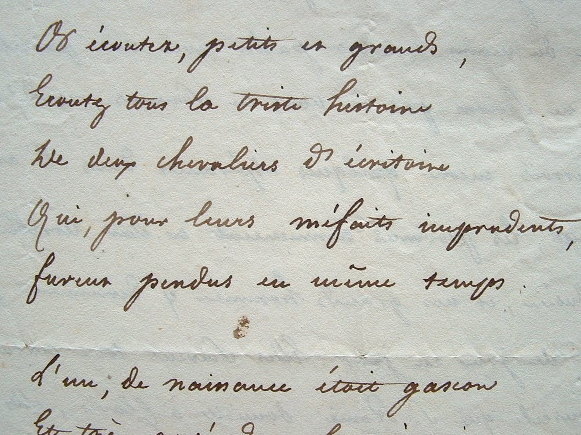 Or écoutez, petits et grands,
Ecoutez tous la triste histoire
De deux chevaliers d'écritoire
Qui, pour leurs méfaits imprudents,
furent pendus en même temps.
L'un, de naissance étoit gascon
Et